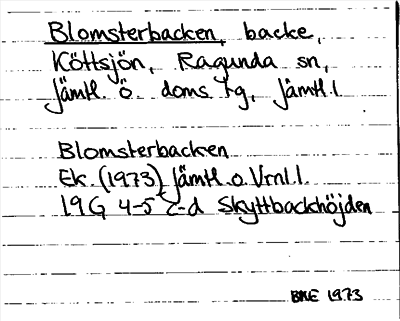 Blomsterbacken, backe,
Köttsjön, Ragunda sn,
Jämtl. ö. doms. tg, Jämtl.l.
Blomsterbacken
Ek. (1973) Jämtl.o.Vrnl.l.
19G 4-5 c-d Skyttbackhöjden
BKE 1973